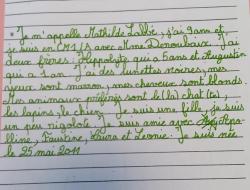 * Je m'appelle Mathilde Labbé, j'ai 9 ans et
je suis en CM1/S avec Mme Denoubaux. J'ai
deux frères : Hippolyte qui a 5 ans et Augustin
qui a 1 an. J'ai des lunettes noires, mes
yeux sont marron, mes cheveux sont blonds.
Mes animaux préférés sont le(s) chat(s),
les lapins, le chien. Je suis une fille, je suis
un peu rigolote. Je suis amie avec Apo-
lline, Faustine, Laura et Léonie. Je suis née
le 25 mai 2011